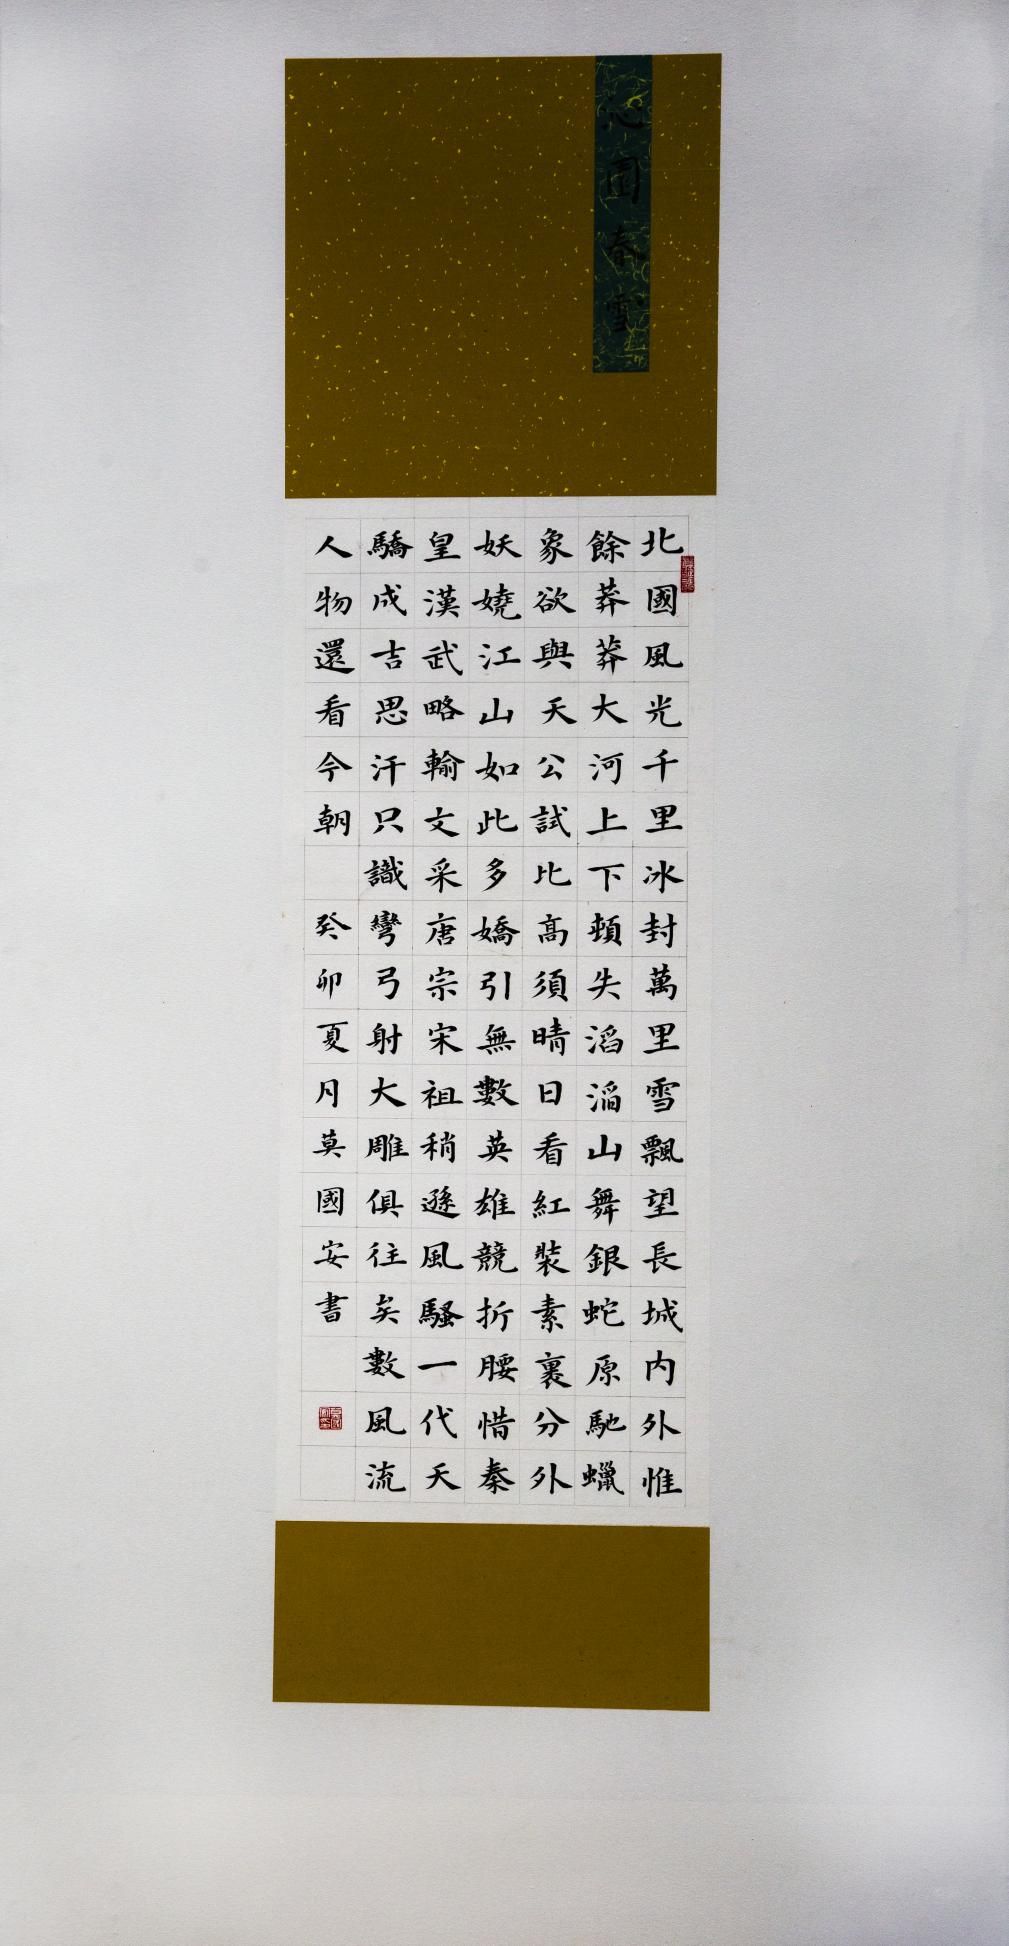 沁園春雪
北國風光千里冰封萬里雪飄望長城内外惟
餘莽莽大河上下頓失滔滔山舞銀蛇原馳蠟
象欲與天公試比高須晴日看紅裝素裹分外
妖嬈江山如此多嬌引無數英雄競折腰惜秦
皇漢武略輸文采唐宗宋祖稍遜風騷一代天
驕成吉思汗只識彎弓射大雕俱往矣數風流
人物還看今朝 癸卯夏月莫國安書